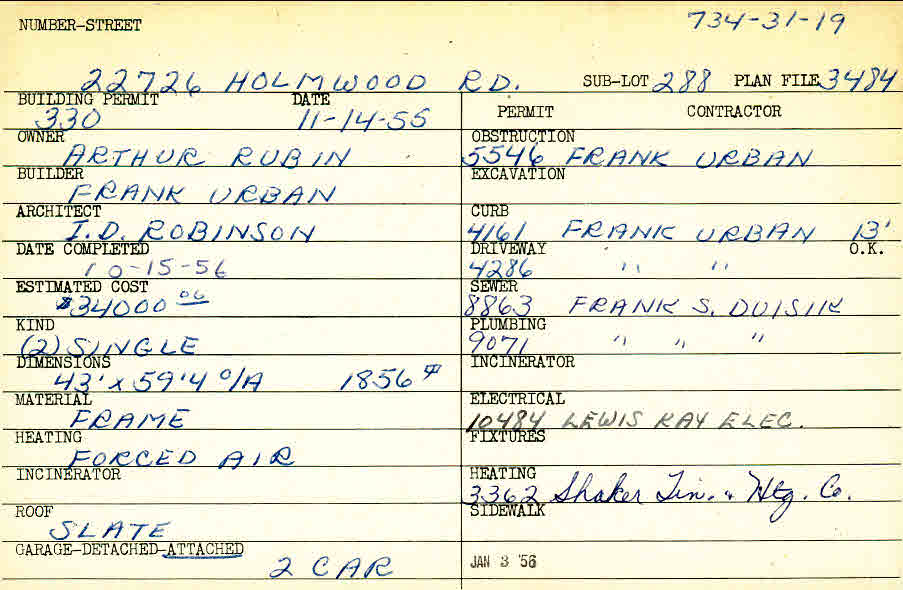 NUMBER-STREET 734-31-19
22726 HOLMWOOD RD. SUB-LOT 288 PLAN FILE 3484
BUILDING PERMIT DATE
330 11-14-55
OWNER
ARTHUR RUBIN
BUILDER
FRANK URBAN
ARCHITECT
I.D. ROBINSON
DATE COMPLETED
10-15-56
ESTIMATED COST
$34000 00
KIND
(2) SINGLE
DIMENSIONS
43' x 59'4 O/A 1856
MATERIAL
FRAME
HEATING
FORCED AIR
INCINERATOR
ROOF
SLATE
GARAGE-DETACHED-ATTACHED
2 CAR
PERMIT CONTRACTOR
OBSTRUCTION
5546 FRANK URBAN
EXCAVATION
CURB
4161 FRANK URBAN 13'
DRIVEWAY O.K.
4286 " "
SEWER
8863 FRANK S.
PLUMBING
9071 " " "
INCINERATOR
ELECTRICAL
10484 LEWIS RAY ELEC.
FIXTURES
HEATING
3362 Shaker Tin. & Htg. Co.
SIDEWALK
JAN 3 '56